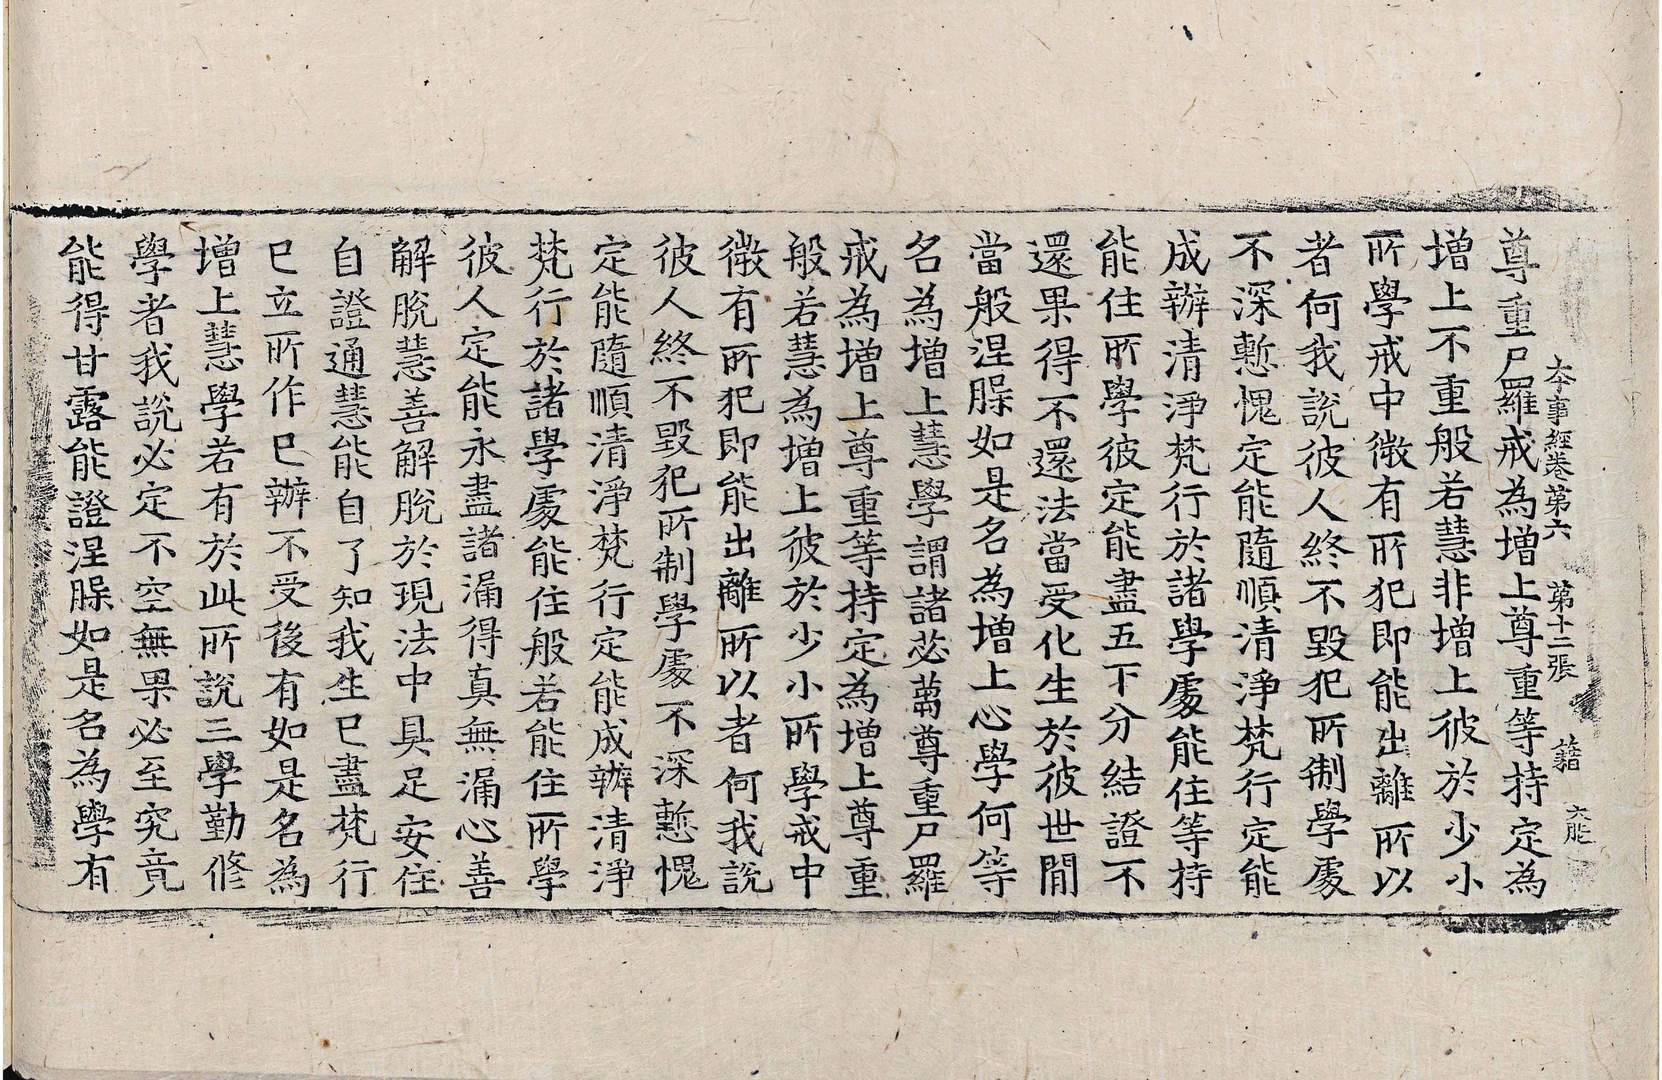 本事經卷第六　第十二張　籍　六能
尊重尸羅戒為增上尊重等持定為
增上不重般若慧非增上彼於少小
所學戒中微有所犯即能出離所以
者何我說彼人終不毀犯所制學處
不深慙愧定能隨順清淨梵行定能
成辦清淨梵行於諸學處能住等持
能住所學彼定能盡五下分結證不
還果得不還法當受化生於彼世間
當般涅槃如是名為增上心學何等
名為增上慧學謂諸苾蒭尊重尸羅
戒為增上尊重等持定為增上尊重
般若慧為增上彼於少小所學戒中
微有所犯即能出離所以者何我說
彼人終不毀犯所制學處不深慙愧
定能隨順清淨梵行定能成辦清淨
梵行於諸學處能住般若能住所學
彼人定能永盡諸漏得真無漏心善
解脫慧善解脫於現法中具足安住
自證通慧能自了知我生已盡梵行
已立所作已辦不受後有如是名為
增上慧學若有於此所說三學勤修
學者我說必定不空無果必至究竟
能得甘露能證涅槃如是名為學有